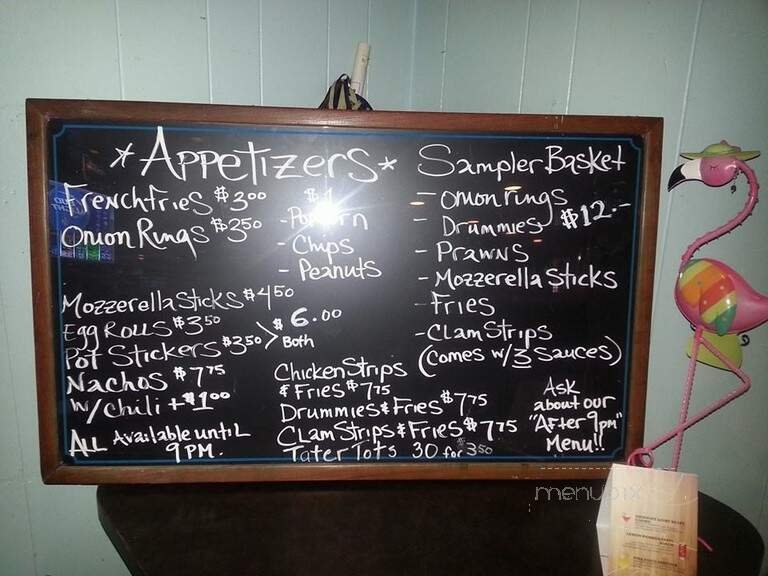 *Appetizers*
French fries $3.00
Onion Rings $3.50
$1
- Popcorn
- Chips
- Peanuts
Mozzerella Sticks $4.50
Egg Rolls $3.50
Pot Stickers $3.50
> $6.00
Both
Nachos $7.75
w/chili +$1.00
All Available until
9PM.
Chicken Strips
& Fries $7.75
Drummies & Fries $7.75
Clam Strips & Fries $7.75
Tater Tots 30 for 3.50
Sampler Basket
- Onion rings
- Drummies $12.-
- Prawns
- Mozzerella Sticks
- Fries
- Clam Strips
(Comes w/3 Sauces)
Ask
about our
"After 9pm"
Menu!!
menupix